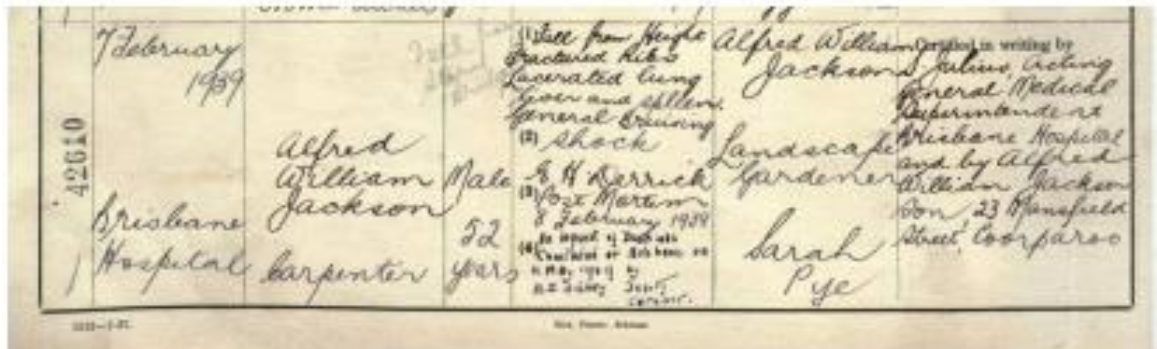 7 February
1939
Brisbane
Hospital
42610
1
Alfred
William
Jackson
Carpenter
Male
52
years
(1) Fall from Height
Fractured Ribs
Lacerated lung
liver and spleen
General Bruising
(2) Shock
E H Derrick
(3) Post Mortem
8 February 1939
(4)
Alfred William
Jackson
Landscape
Gardener
Sarah
Pye
Certified in writing by
Julius, acting
General Medical
Superintendent
Brisbane Hospital
and by Alfred
William Jackson
Son, 23 Mansfield
Street, Coorparoo